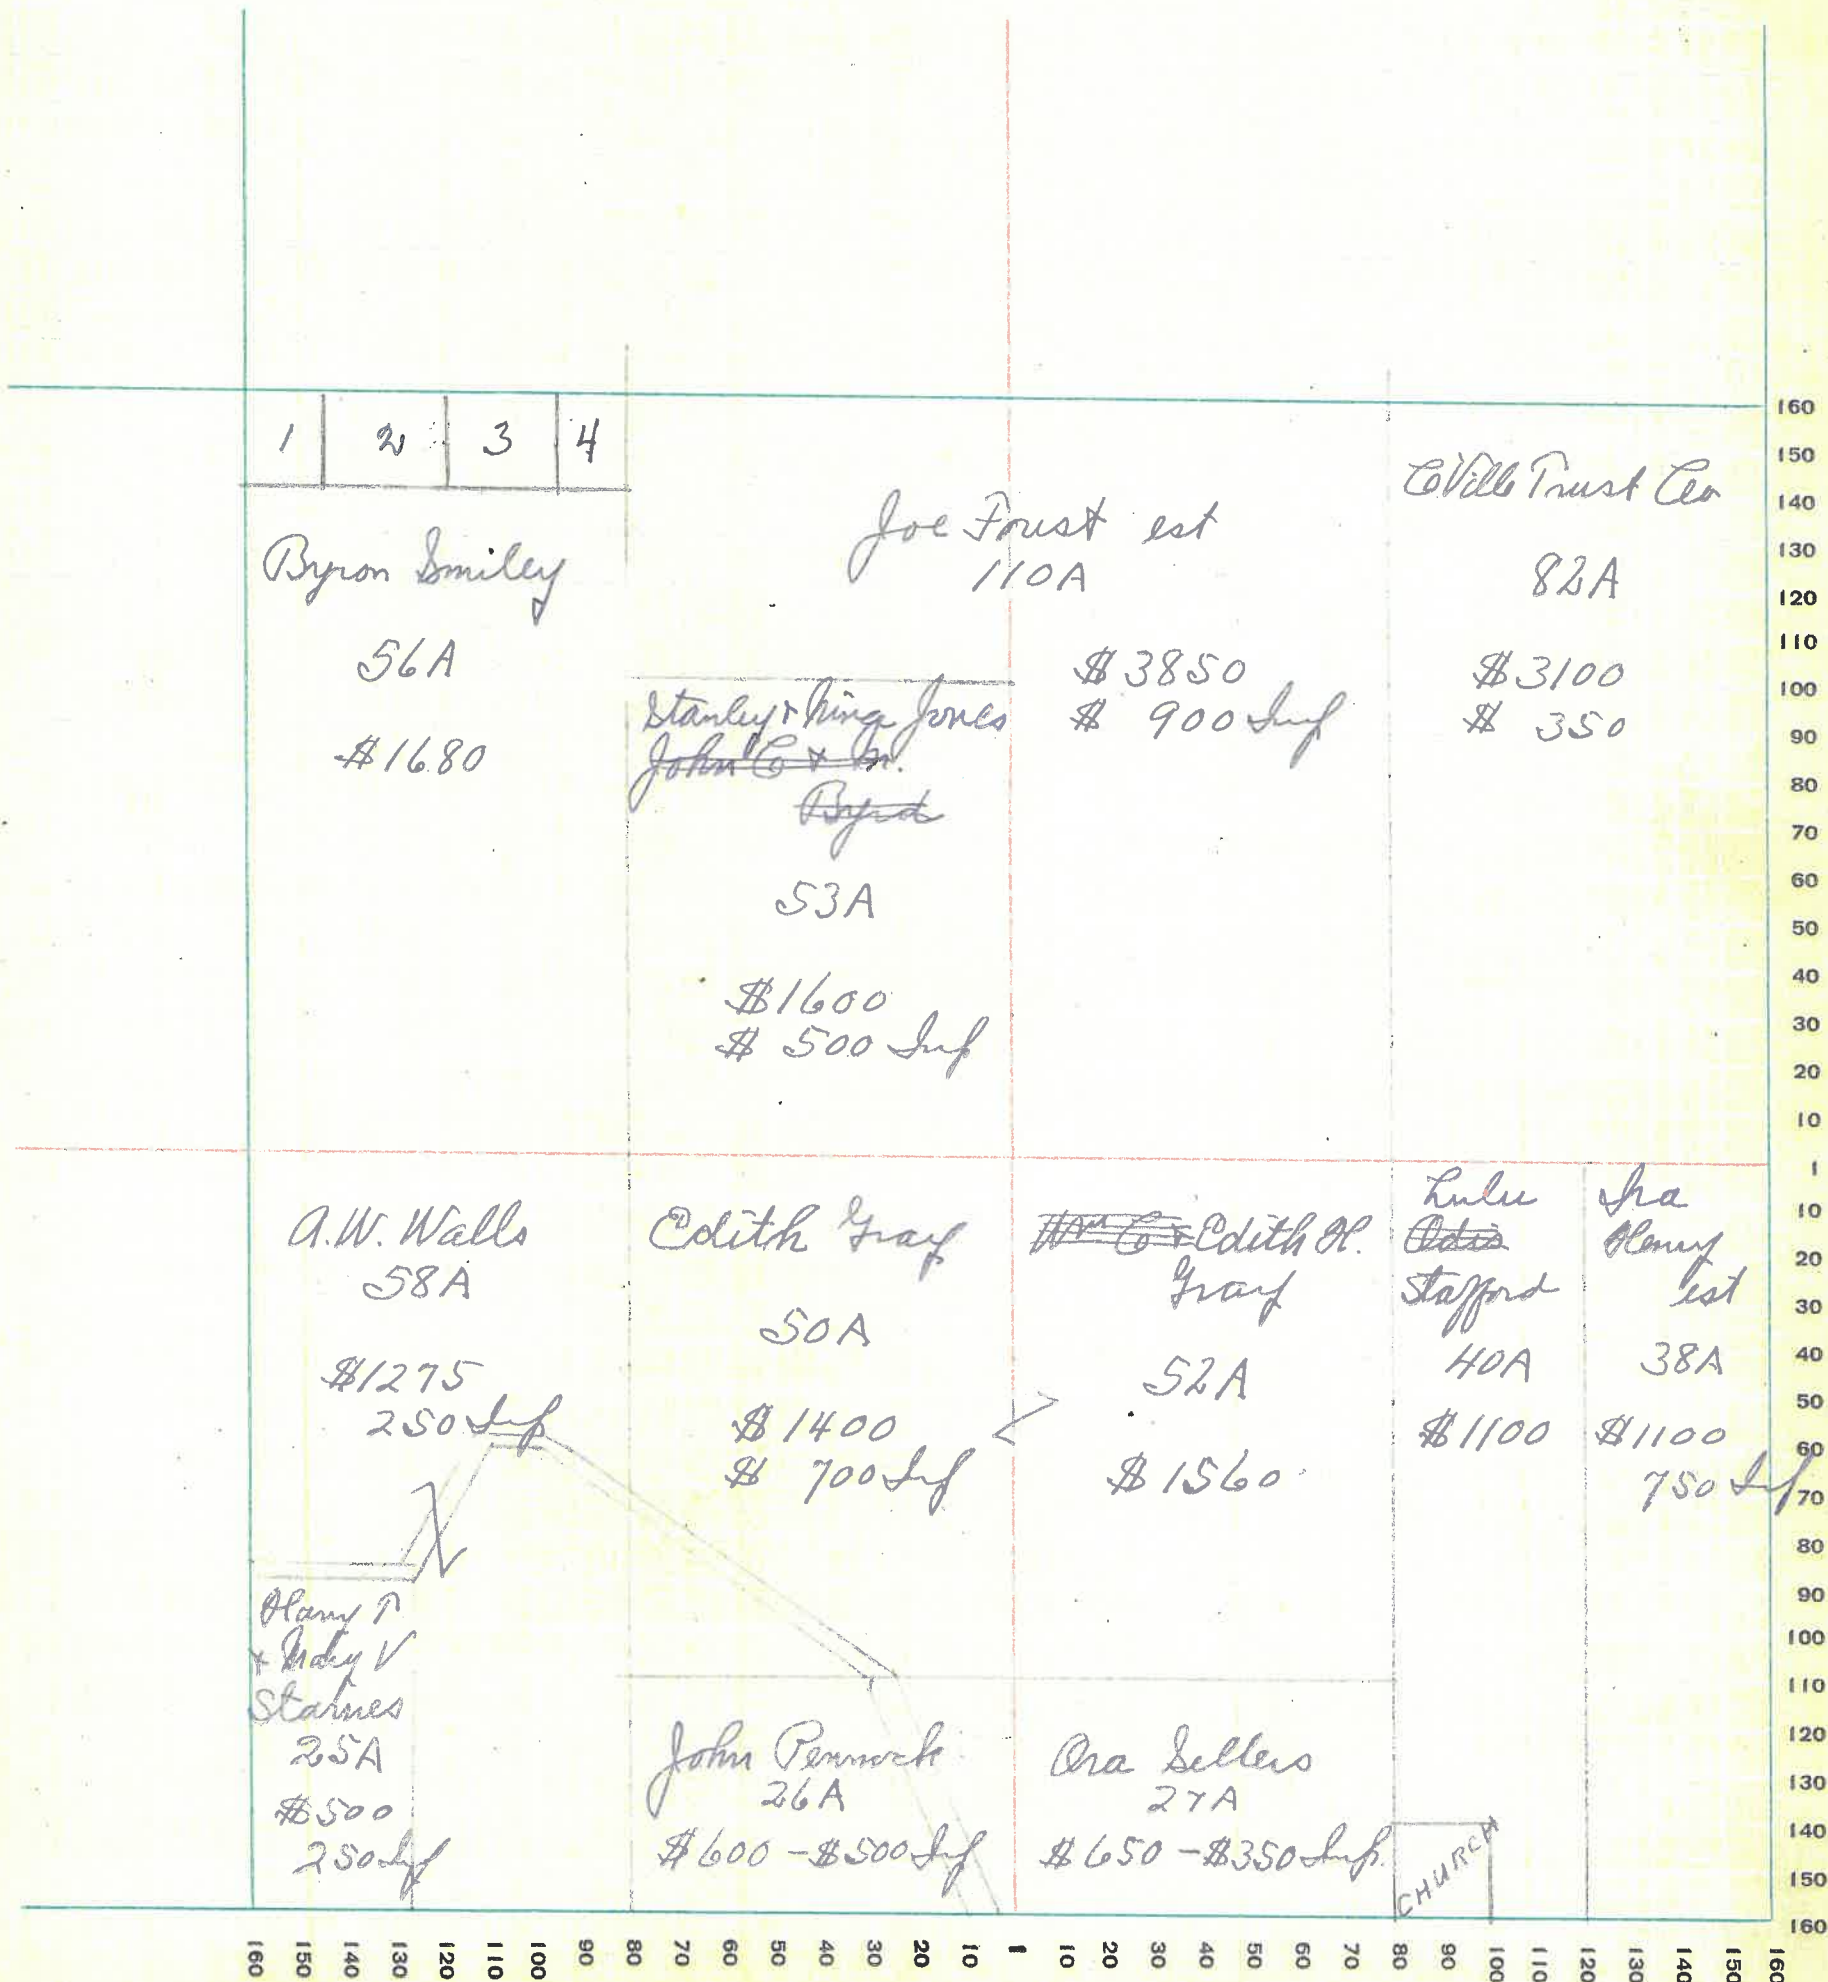 1 2 3 4
Byron Smiley
56A
$1680
Joe Foust est
110A
$3850
$ 900 Imp
CVille Trust Co
82A
$3100
$ 350
Stanley + Jones
John C + M.
Byrd
53A
$1600
$ 500 Imp
A.W. Walls
58A
$1275
250 Imp
Edith Gray
50A
$1400
$ 700 Imp
Wm C + Edith H.
Gray
52A
$1560
Lulu
Odis
Stafford
40A
$1100
Ira
Henry
est
38A
$1100
750 Imp
Harry
+ Mary V
Starnes
25A
$500
250 Imp
John Pennock
26A
$600 - $500 Imp
Ora Sellers
27A
$650 - $350 Imp.
CHURCH
160
150
140
130
120
110
100
90
80
70
60
50
40
30
20
10
1
10
20
30
40
50
60
70
80
90
100
110
120
130
140
150
160
160 150 140 130 120 110 100 90 80 70 60 50 40 30 20 10 1 10 20 30 40 50 60 70 80 90 100 110 120 130 140 150 160